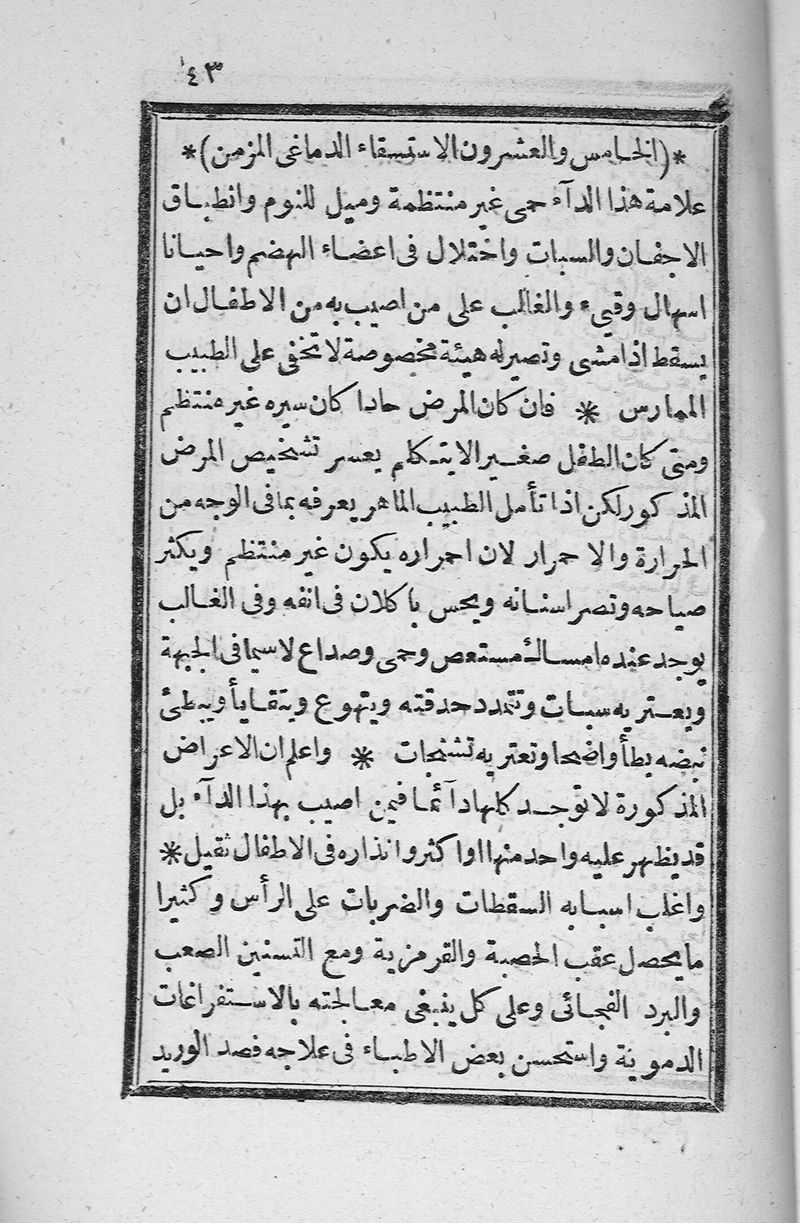 ٤٣
*(الخامس والعشرون الاستسقاء الدماغى المزمن)*
علامة هذا الدآء حمى غير منتظمة وميل للنوم وانطباق
الاجفان والسبات واختلال فى اعضاء الهضم واحيانا
اسهال وقيىء والغالب على من اصيب به من الاطفال ان
يسقط اذا مشى وتصير له هيئة مخصوصة لا تخفى على الطبيب
الممارس * فان كان المرض حادا كان سيره غير منتظم
ومتى كان الطفل صغيرا لا يتكلم يعسر تشخيص المرض
المذكور لكن اذا تأمل الطبيب الماهر يعرفه بما فى الوجه من
الحرارة والاحمرار لان احمراره يكون غير منتظم ويكثر
صياحه وتصر اسنانه ويحس باكلان فى انفه وفى الغالب
يوجد عنده امساك مستعص وحمى وصداع لاسيما فى الجبهة
ويعتريه سبات وتتمدد حدقته ويتهوع ويتقايأ ويبطئ
نبضه بطأ واضحا وتعتريه تشنجات * واعلم ان الاعراض
المذكورة لا توجد كلها دآئما فيمن اصيب بهذا الدآء بل
قد يظهر عليه واحد منها او اكثر وانذاره فى الاطفال ثقيل *
واغلب اسبابه السقطات والضربات على الرأس وكثيرا
ما يحصل عقب الحصبة والقرمزية ومع التسنين الصعب
والبرد الفجائى وعلى كل ينبغى معالجته بالاستفراغات
الدموية واستحسن بعض الاطباء فى علاجه فصد الوريد